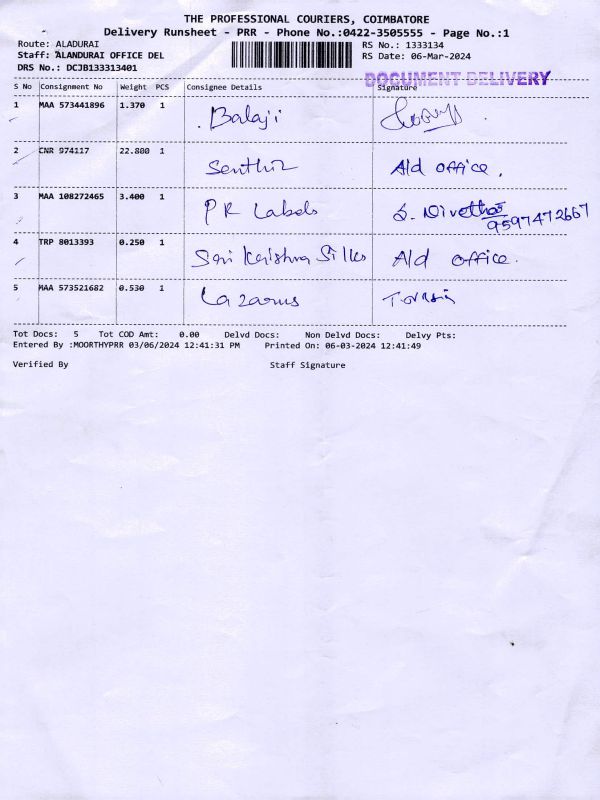 THE PROFESSIONAL COURIERS, COIMBATORE
Delivery Runsheet - PRR - Phone No.:0422-3505555 - Page No.:1
Route: ALADURAI RS No.: 1333134
Staff: ALANDURAI OFFICE DEL RS Date: 06-Mar-2024
DRS No.: DCJB133313401
DOCUMENT DELIVERY
S No Consignment No Weight PCS Consignee Details Signature
1 MAA 573441896 1.370 1 Balaji
2 CNR 974117 22.800 1 Senthil Ald office.
3 MAA 108272465 3.400 1 PR Labels S. Nivetha
9597472667
4 TRP 8013393 0.250 1 Sri Krishna Silks Ald office.
5 MAA 573521682 0.530 1 Lazarus
Tot Docs: 5 Tot COD Amt: 0.00 Delvd Docs: Non Delvd Docs: Delvy Pts:
Entered By :MOORTHYPRR 03/06/2024 12:41:31 PM Printed On: 06-03-2024 12:41:49
Verified By Staff Signature